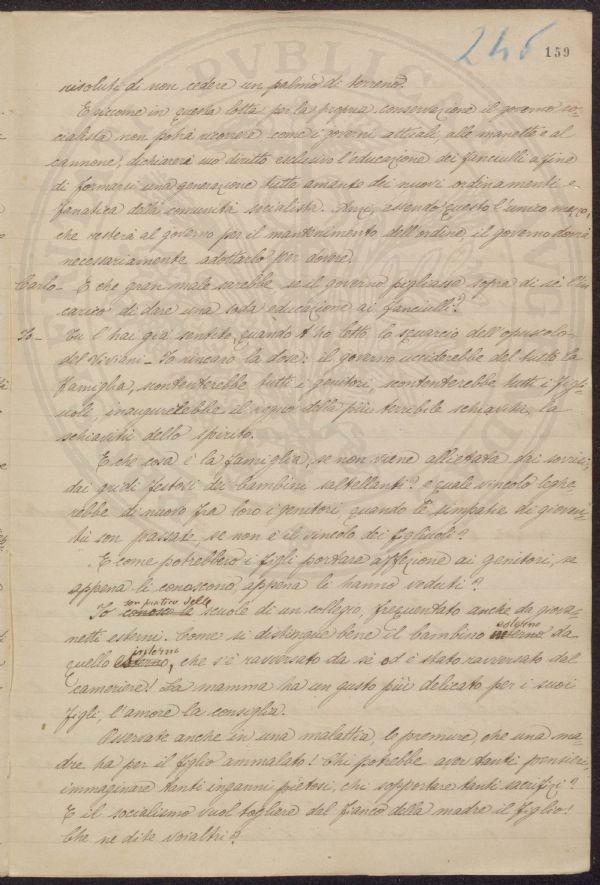 245 159
risoluti di non cedere un palmo di terreno.
E siccome in questa lotta per la propria conservazione il governo so-
cialista non potrà ricorrere come i governi attuali, alle manette e al
cannone, dichiarerà suo diritto esclusivo l'educazione dei fanciulli a fine
di formarsi una generazione tutta amante dei nuovi ordinamenti e
fanatica della comunità socialista. Anzi, essendo questo l'unico mezzo,
che resterà al governo per il mantenimento dell'ordine, il governo dovrà
necessariamente adottarlo per dovere.
Carlo - E che gran male sarebbe se il governo pigliasse sopra di sè l'in-
carico di dare una soda educazione ai fanciulli?
Io - Tu l'hai già sentito, quando t'ho letto lo squarcio dell'opuscolo
del Viviani - Io rincaro la dose: il governo ucciderebbe del tutto la
famiglia, scontenterebbe tutti i genitori, scontenterebbe tutti i figli-
uoli, inaugurerebbe il regno della più terribile schiavitù, la
schiavitù dello spirito.
E che cosa è la famiglia, se non viene allietata dai sorrisi,
dai gridi festosi dei bambini saltellanti? e quale vincolo leghe-
rebbe di nuovo fra loro i genitori, quando le simpatie di gioven-
tù son passate, se non è il vincolo dei figliuoli?
E come potrebbero i figli portare affezione ai genitori, se
appena li conoscono, appena li hanno veduti?
son pratico delle
Io conosco le scuole di un collegio, frequentato anche da giova-
netti esterni. Come si distingue bene il bambino interno da
esterno
quello esterno, che s'è ravversato da sè od è stato ravversato dal
interno
cameriere! La mamma ha un gusto più delicato per i suoi
figli, l'amore la consiglia.
Osservate anche in una malattia, le premure, che una ma-
dre ha per il figlio ammalato! Chi potrebbe aver tanti pensieri,
immaginare tanti inganni pietosi, chi sopportare tanti sacrifizi?
E il socialismo vuol togliere dal fianco della madre il figlio!
Che ne dite voialtri?